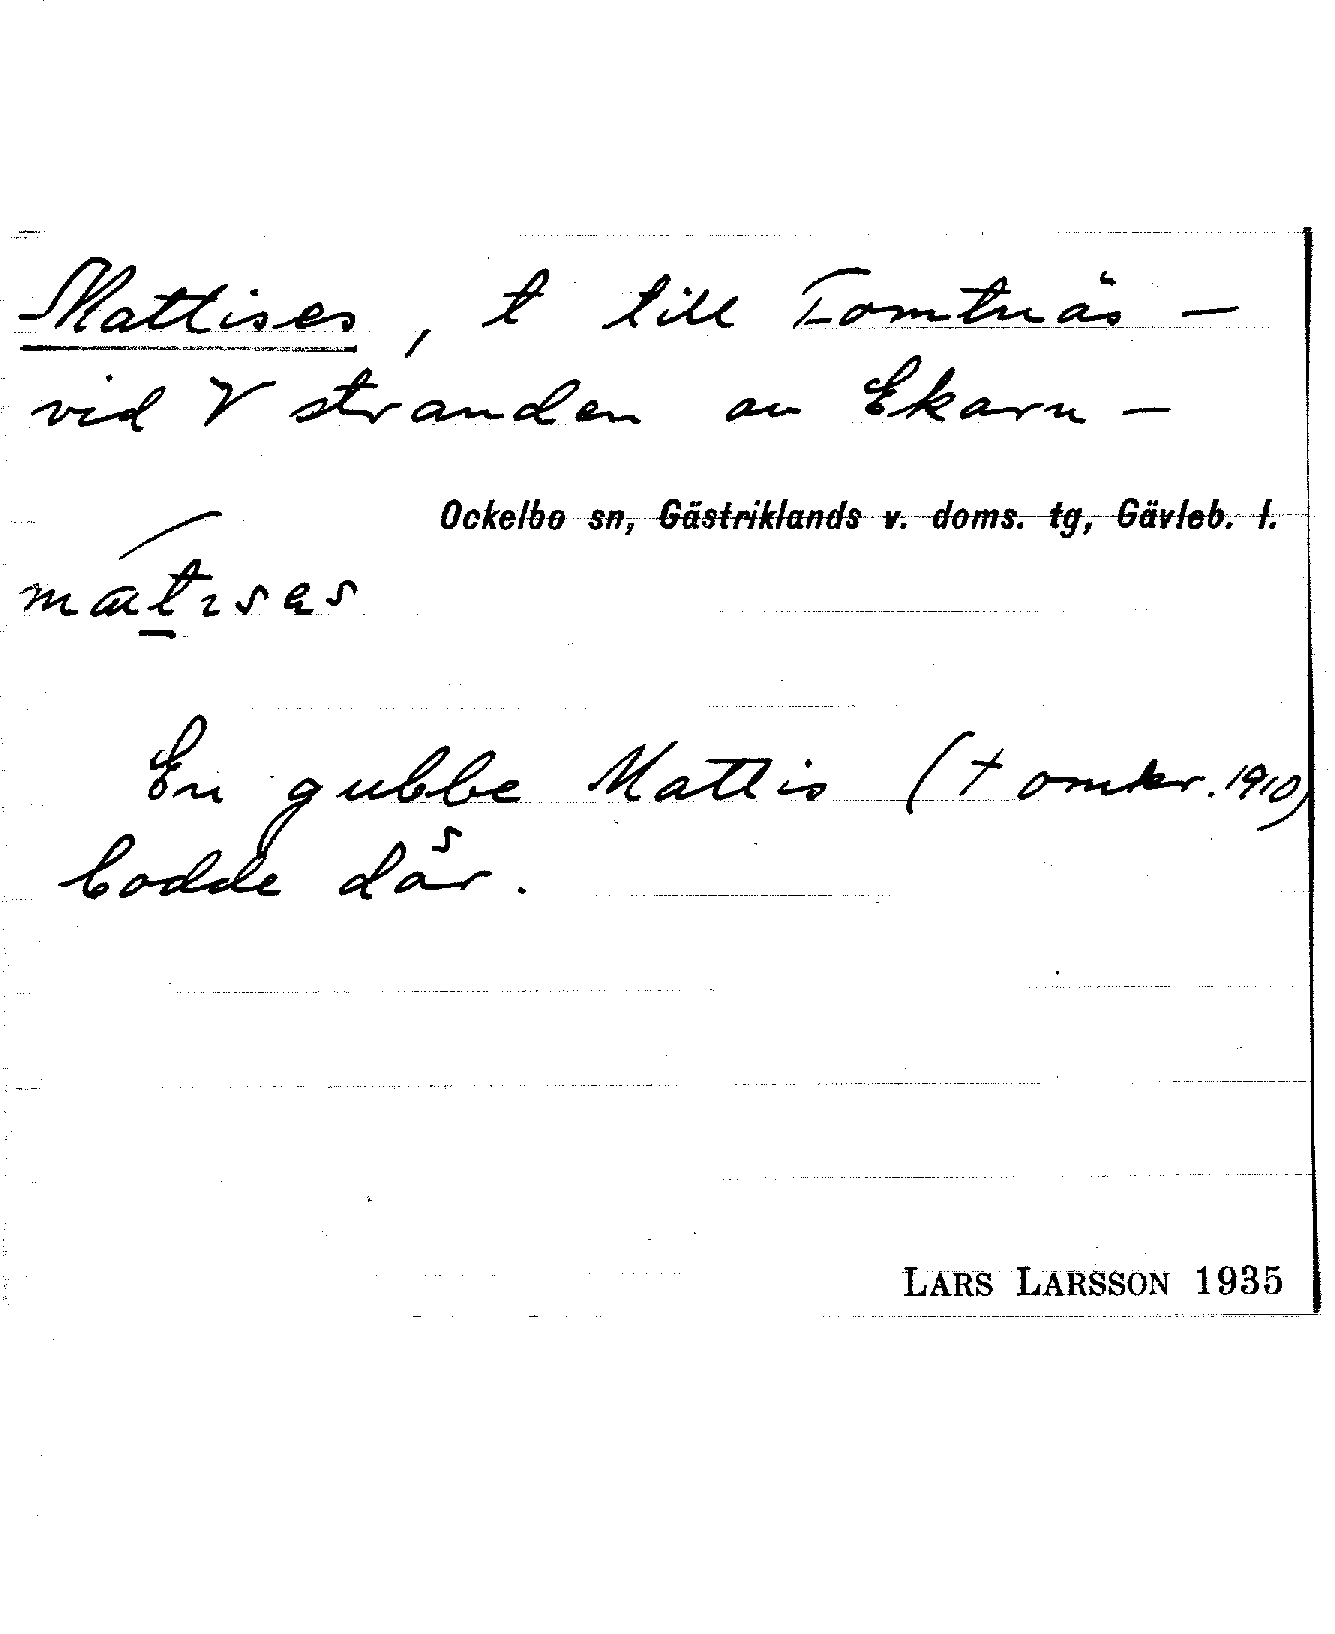 Mattises, t till Tomtnäs –
vid V stranden av Ekaren –
Ockelbo sn, Gästriklands v. doms. tg, Gävleb. l.
En gubbe Mattis († omkr. 1910)
bodde där.
LARS LARSSON 1935